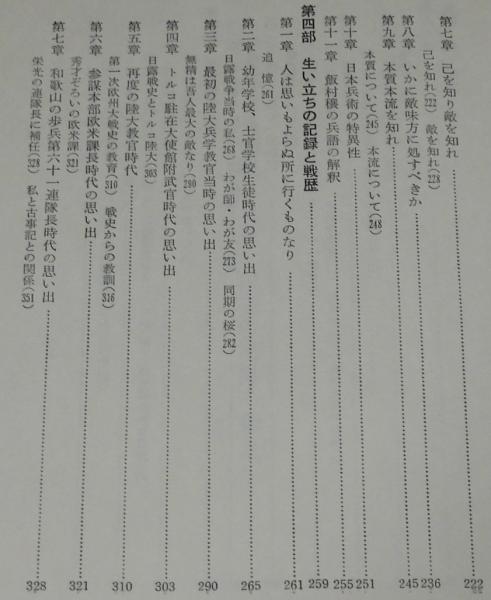 第七章 己を知り敵を知れ……222
己を知れ(222) 敵を知れ(228)
第八章 いかに敵味方に処すべきか……236
第九章 本質本流を知れ……245
本質について(245) 本流について(248)
第十章 日本兵術の特異性……251
第十一章 飯村穣の兵語の解釈……255
第四部 生い立ちの記録と戦歴……259
第一章 人は思いもよらぬ所に行くものなり……261
追憶(261)
第二章 幼年学校、士官学校生徒時代の思い出……265
日露戦争当時の私(268) わが師・わが友(273) 同期の桜(282)
第三章 最初の陸大兵学教官当時の思い出……290
無精は吾人最大の敵なり(290)
第四章 トルコ駐在大使館附武官時代……303
日露戦史とトルコ陸大(303)
第五章 再度の陸大教官時代……310
第一次欧州大戦史の教育(310) 戦史からの教訓(316)
第六章 参謀本部欧米課長時代の思い出……321
秀才ぞろいの欧米課(321)
第七章 和歌山の歩兵第六十一連隊長時代の思い出……328
栄光の連隊長に補任(328) 私と古事記との関係(351)